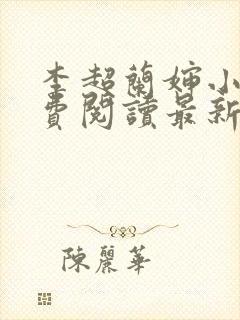 李超蘭嬸小
費閱讀最新
陳麗華